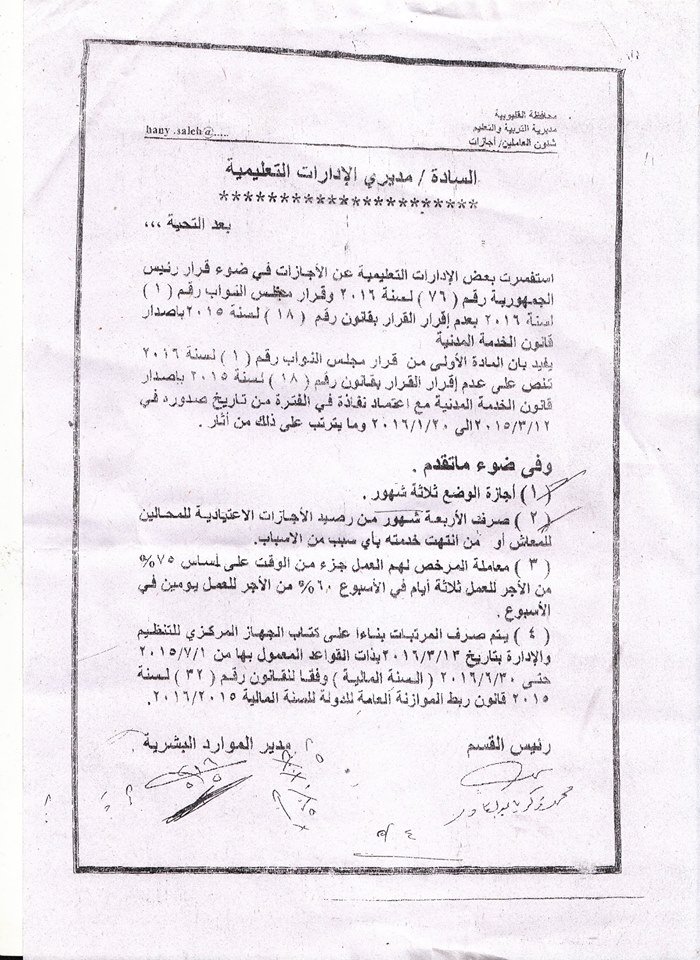 محافظة القليوبية
مديرية التربية والتعليم
شئون العاملين/ أجازات
hany .saleh@.....
السادة / مديري الإدارات التعليمية
*********************
بعد التحية ,,,
استفسرت بعض الإدارات التعليمية عن الأجازات في ضوء قرار رئيس
الجمهورية رقم ( ٧٦ ) لسنة ٢٠١٦ وقرار مجلس النواب رقم ( ١ )
لسنة ٢٠١٦ بعدم إقرار القرار بقانون رقم ( ١٨ ) لسنة ٢٠١٥ باصدار
قانون الخدمة المدنية
يفيد بان المادة الأولى من قرار مجلس النواب رقم ( ١ ) لسنة ٢٠١٦
تنص على عدم إقرار القرار بقانون رقم ( ١٨ ) لسنة ٢٠١٥ باصدار
قانون الخدمة المدنية مع اعتماد نفاذة في الفترة من تاريخ صدوره في
٢٠١٥/٣/١٢ الى ٢٠١٦/١/٢٠ وما يترتب على ذلك من أثار .
وفى ضوء ماتقدم .
( ١ ) أجازة الوضع ثلاثة شهور .
( ٢ ) صرف الأربعة شهور من رصيد الأجازات الاعتيادية للمحالين
للمعاش أو من انتهت خدمته بأي سبب من الاسباب.
( ٣ ) معاملة المرخص لهم العمل جزء من الوقت على أساس ٧٥%
من الأجر للعمل ثلاثة أيام في الأسبوع ٦٠% من الأجر للعمل يومين في
الأسبوع .
( ٤ ) يتم صرف المرتبات بناءا على كتاب الجهاز المركزي للتنظيم
والإدارة بتاريخ ٢٠١٦/٣/١٣ بذات القواعد المعمول بها من ٢٠١٥/٧/١
حتى ٢٠١٦/٦/٣٠ ( السنة المالية ) وفقا للقانون رقم ( ٣٢ ) لسنة
٢٠١٥ قانون ربط الموازنة العامة للدولة للسنة المالية ٢٠١٦/٢٠١٥.
رئيس القسم
مدير الموارد البشرية